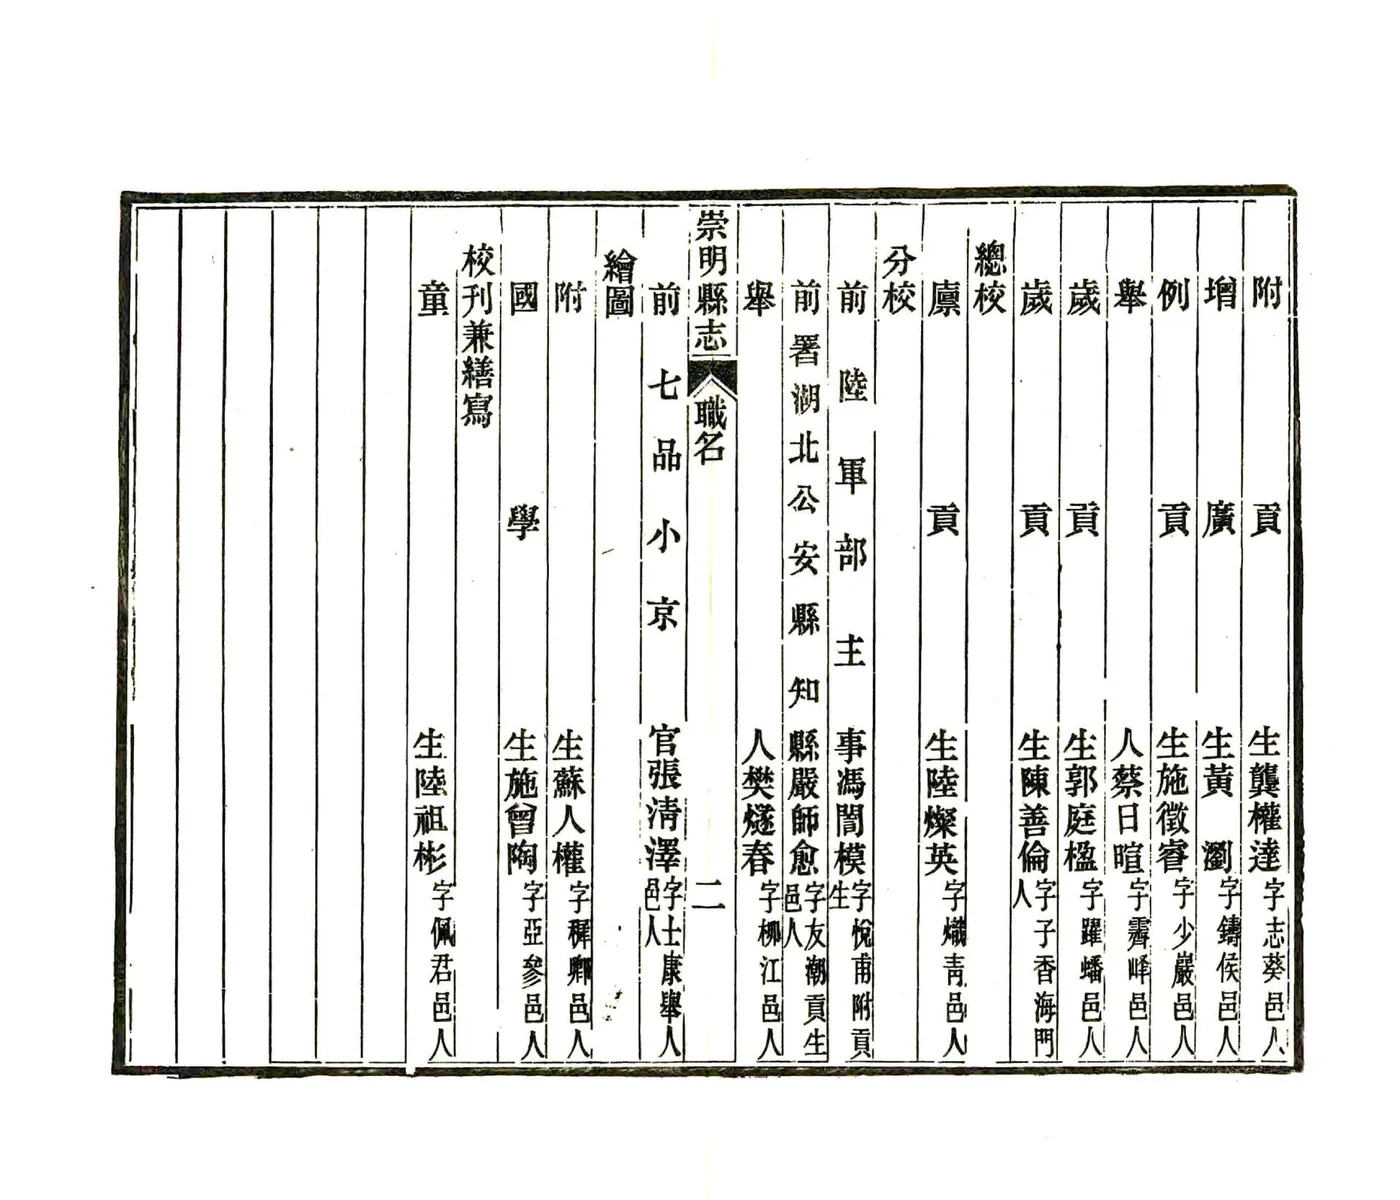 附貢生龔權達字志葵邑人
增廣生黃瀏字鑄侯邑人
例貢生施徵睿字少巖邑人
舉人蔡日暄字霽峰邑人
歲貢生郭庭楹字躍蟠邑人
歲貢生陳善倫字子香海門人
總校
廩貢生陸燦英字熾青邑人
分校
前陸軍部主事馮誾模字悅甫附貢生
前署湖北公安縣知縣嚴師愈字友潮貢生邑人
舉人樊燧春字柳江邑人
崇明縣志 職名 二
前七品小京官張清澤字士康舉人邑人
繪圖
附生蘇人權字穉卿邑人
國學生施曾陶字亞參邑人
校刊兼繕寫
童生陸祖彬字佩君邑人